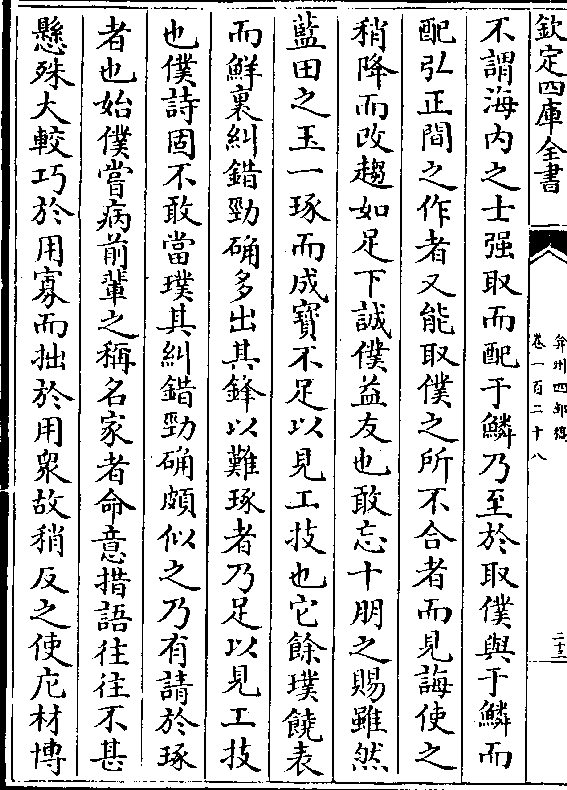 欽定四庫全書
弇州四部稿
卷一百二十八
二十三
不謂海內之士强取而配于鱗乃至於取僕與于鱗而
配弘正間之作者又能取僕之所不合者而見誨使之
稍降而改趨如足下誠僕益友也敢忘十朋之賜雖然
藍田之玉一琢而成寳不足以見工技也它餘璞饒表
而鮮裏糾錯勁确多出其鋒以難琢者乃足以見工技
也僕詩固不敢當璞其糾錯勁确頗似之乃有請於琢
者也始僕嘗病前輩之稱名家者命意措語往往不甚
懸殊大較巧於用寡而拙於用衆故稍反之使庀材博